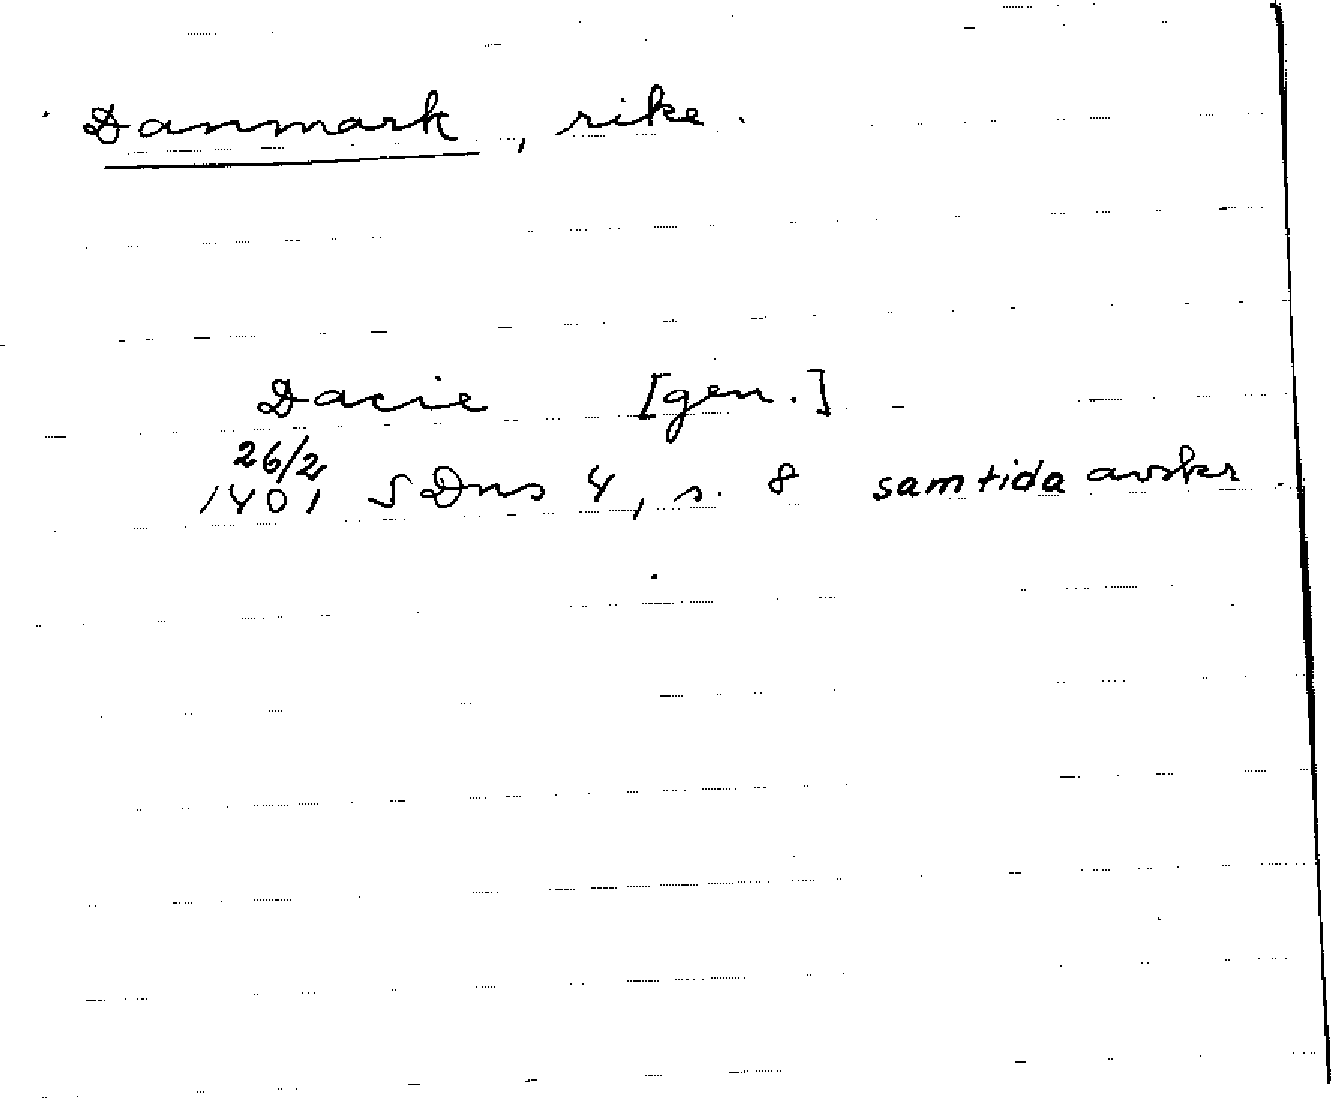 Danmark, rike.
Dacie [gen.]
26/2
1401 SDns 4, s. 8 samtida avskr